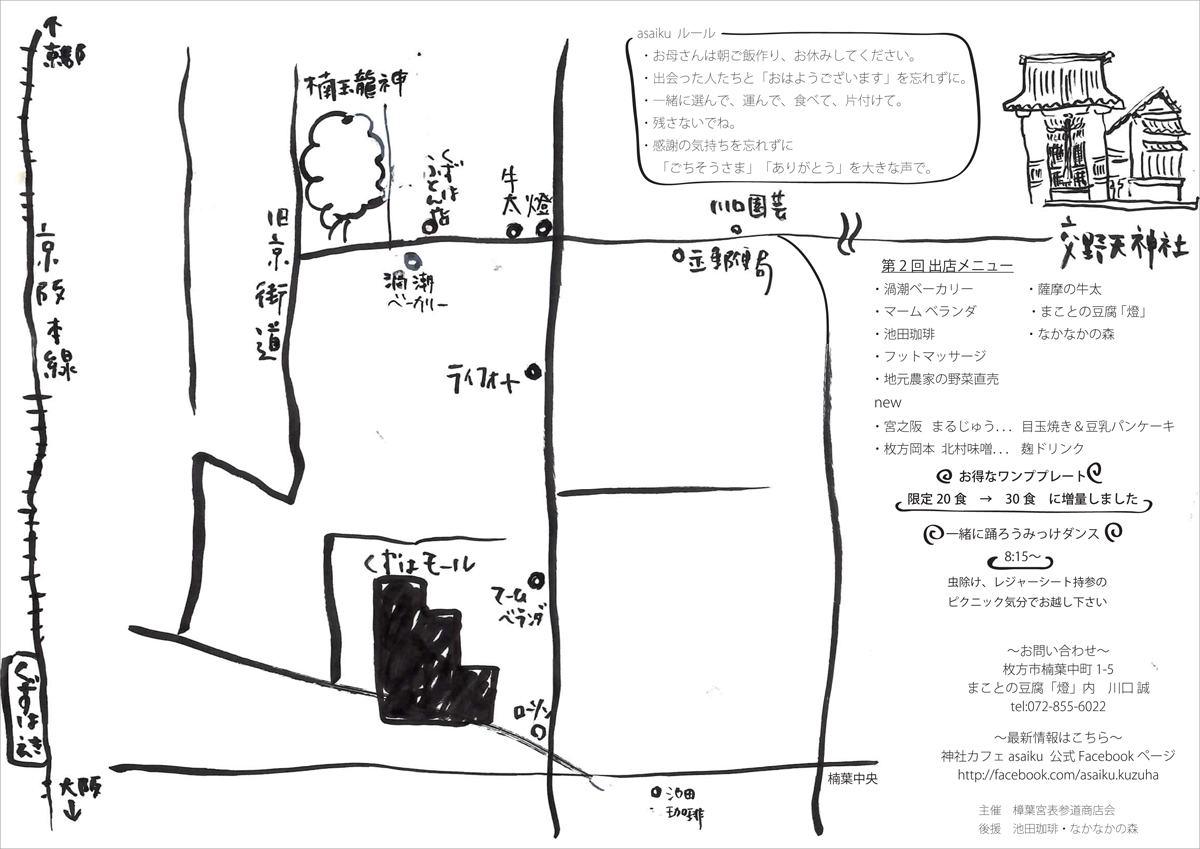 ↑
京都
京阪本線
くずはえき
大阪
↓
旧京街道
楠玉龍神
くずは
ふとん店
牛太
燈
渦潮
ベーカリー
ライフォート
くずはモール
マーム
ベランダ
ローソン
池田
珈琲
楠葉中央
川口園芸
〒郵便局
交野天神社
asaiku ルール
・お母さんは朝ご飯作り、お休みしてください。
・出会った人たちと「おはようございます」を忘れずに。
・一緒に選んで、運んで、食べて、片付けて。
・残さないでね。
・感謝の気持ちを忘れずに
「ごちそうさま」「ありがとう」を大きな声で。
第2回 出店メニュー
・渦潮ベーカリー
・マーム ベランダ
・池田珈琲
・フットマッサージ
・地元農家の野菜直売
・薩摩の牛太
・まことの豆腐「燈」
・なかなかの森
new
・宮之阪 まるじゅう... 目玉焼き＆豆乳パンケーキ
・枚方岡本 北村味噌... 麹ドリンク
お得なワンププレート
限定20食 → 30食 に増量しました
一緒に踊ろうみっけダンス
8:15〜
虫除け、レジャーシート持参の
ピクニック気分でお越し下さい
〜お問い合わせ〜
枚方市楠葉中町 1-5
まことの豆腐「燈」内 川口 誠
tel:072-855-6022
〜最新情報はこちら〜
神社カフェ asaiku 公式 Facebook ページ
http://facebook.com/asaiku.kuzuha
主催 樟葉宮表参道商店会
後援 池田珈琲・なかなかの森